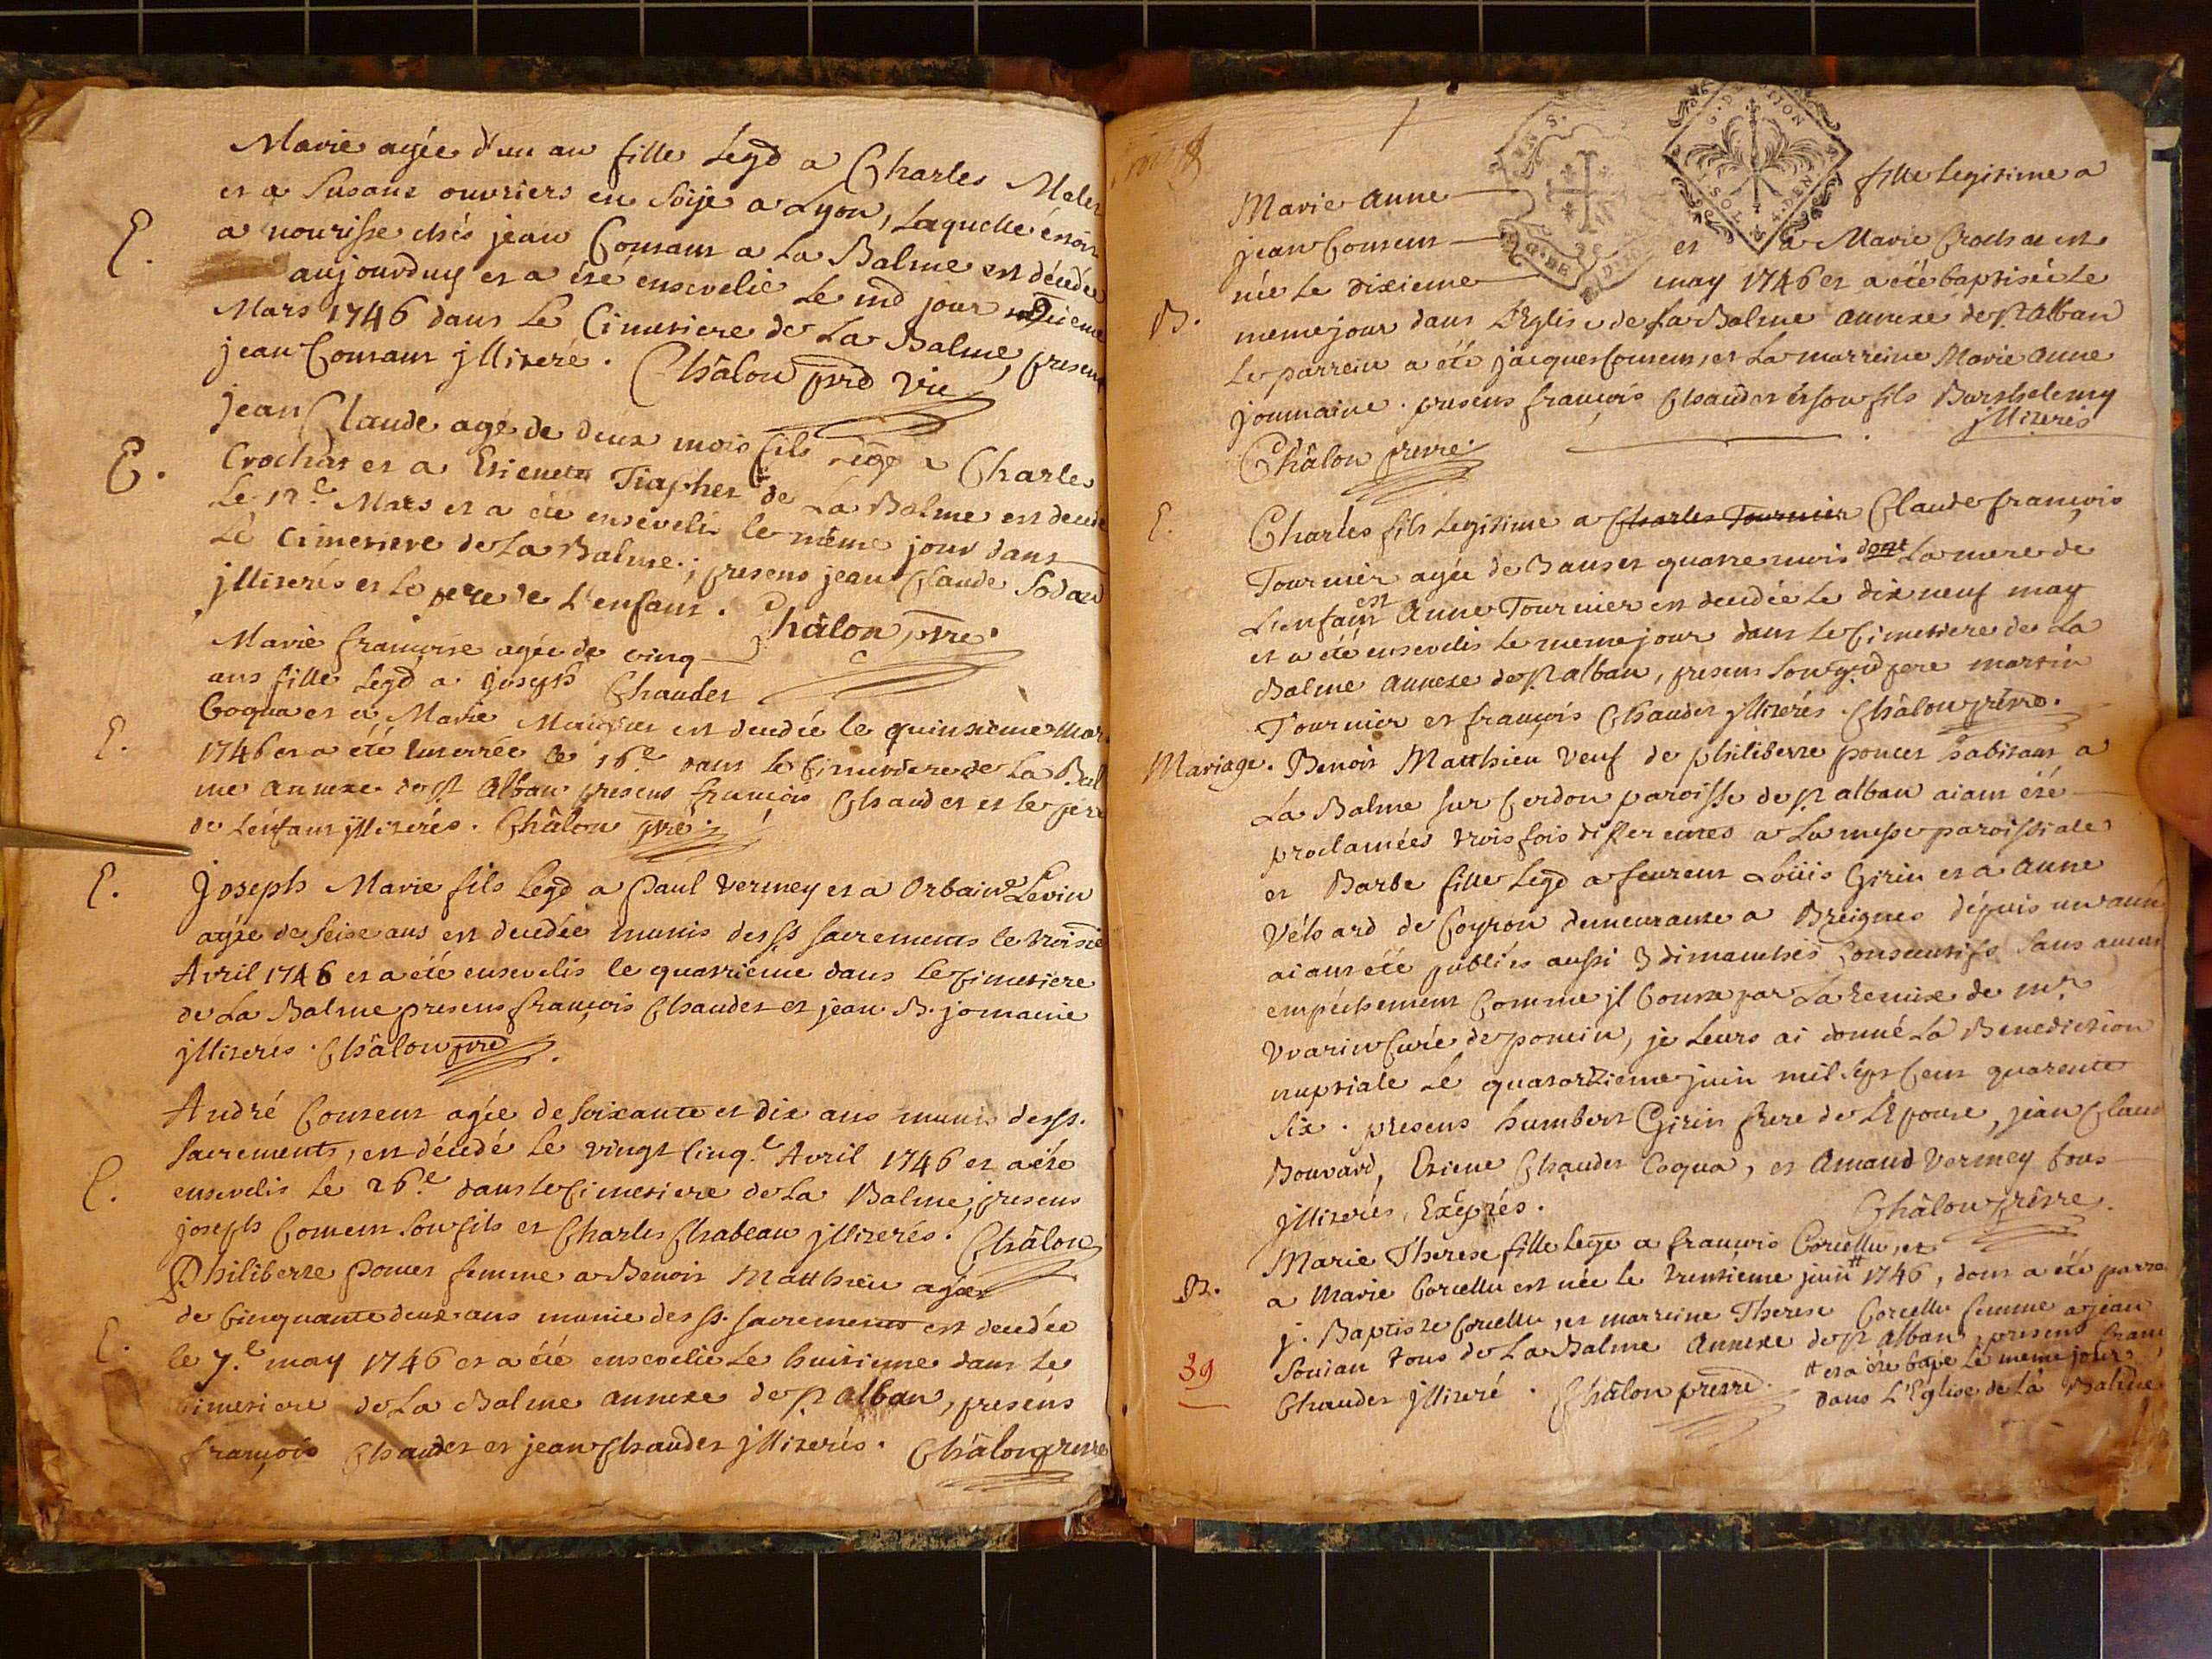 Marie agée d'un an fille Legd a Charles
et a Susane ouvriers en Soije a Lyon, Laquelle étoit
E.
a nourisse chés jean Comant a La Balme est décédée
aujourduy et a été ensevelie le md jour
Mars 1746 dans Le Cimetiere de La Balme, present
jean Comant jlliteré. Châlon ptre vic
jean Claude agé de deux mois fils Lég a Charles
E.
Crochat et a Etienette de La Balme est decedé
Le 12e Mars et a été enseveli le même jour dans
Le Cimetiere de La Balme; presens jean Claude Sodan
jlliterés et Le pere de L'enfant. Châlon ptre.
Marie françoise agée de cinq
ans fille Legd a joseph Chaudet
E.
Coqua et a Marie est decedée le quinsieme Mar
1746 et a été enterrée le 16e dans le Cimetiere de La Bal
me Annexe de st Alban presens françois Chaudet et le pere
de L'enfant jlliterés. Châlon ptre.
E.
Joseph Marie fils Legd a Paul Vermey et a Orbaine Levin
agée de seise ans est decedée munis des ss sacrements le troisie
Avril 1746 et a été ensevelis le quatrieme dans Le Cimetiere
de La Balme presens françois Chaudet et jean B. jomaine
jlliterés. Châlon ptre
André Coment agée de soixante et dix ans munis des ss.
sacrements, est décedé Le vingt cinq.e Avril 1746 et a été
E.
ensevelis Le 26.e dans le Cimetiere de La Balme, presens
joseph Coment son fils et Charles Chabeau jlliterés. Châlon
Philiberte Poncet femme a Benoit Matthieu agée
E.
de Cinquante deux ans munie des ss. sacrements est decedée
le 7.e may 1746 et a été ensevelie Le huitieme dans Le
Cimetiere de La Balme annexe de st alban, presens
françois Chaudet et jean Chaudet jlliterés. Châlon pretre
Marie Anne fille Legitime a
jean Coment et a Marie Crochat est
née Le dixieme may 1746 et a été baptisée Le
B.
meme jour dans L'Eglise de La Balme annexe de st Alban
Le parrein a été jacques Coment, et La marreine Marie Anne
joumaine. presens françois Chaudet et son fils Barthelemy
jlliterés
Châlon pretre.
E.
Charles fils Legitime a Charles Tournier Claude françois
Tournier agée de 3 ans et quatre mois dont La mere de
L'enfant est Anne Tournier est decedée Le dix neuf may
et a été ensevelis Le meme jour dans Le Cimetiere de La
Balme annexe de st alban, presens son gr.d pere martin
Tournier et françois Chaudet jlliterés. Châlon pretre.
Mariage. Benoit Matthieu veuf de philiberte poncet habitant a
La Balme sur Cerdon paroisse de st alban aiant été
proclamées trois fois differentes a La messe paroissiale
et Barbe fille Legd a feurent Loüis Girin et a Anne
Vélo ard de Coyron demeurante a Breignes dépuis un année
aiant été publiés aussi 3 dimanches Consecutifs sans aucun
empéchement Comme jl Conste par La remise de mr
Curé de poncin, je Leurs ai donné La Benediction
nuptiale Le quatortzieme juin mil sept Cent quarente
six. presens humbert Girin frere de L'Epouse, jean Claud
Bouvard, Etiene Chaudet Coqua, et Amand Vermey tous
jlliterés, Exéprés. Châlon prêtre.
Marie Therese fille Lege a françois Corcellu, et
B.
a Marie Corcellu est née Le trentieme juin # 1746, dont a été parre
j. Baptiste Corcellu, et marreine Therese Corcellu femme a jean
39
Soujan tous de La Balme Annexe de st alban, presens fran
Chaudet jlliteré. Châlon pretre. # et a été bapé Le meme jour
dans L'Eglise de La Balme